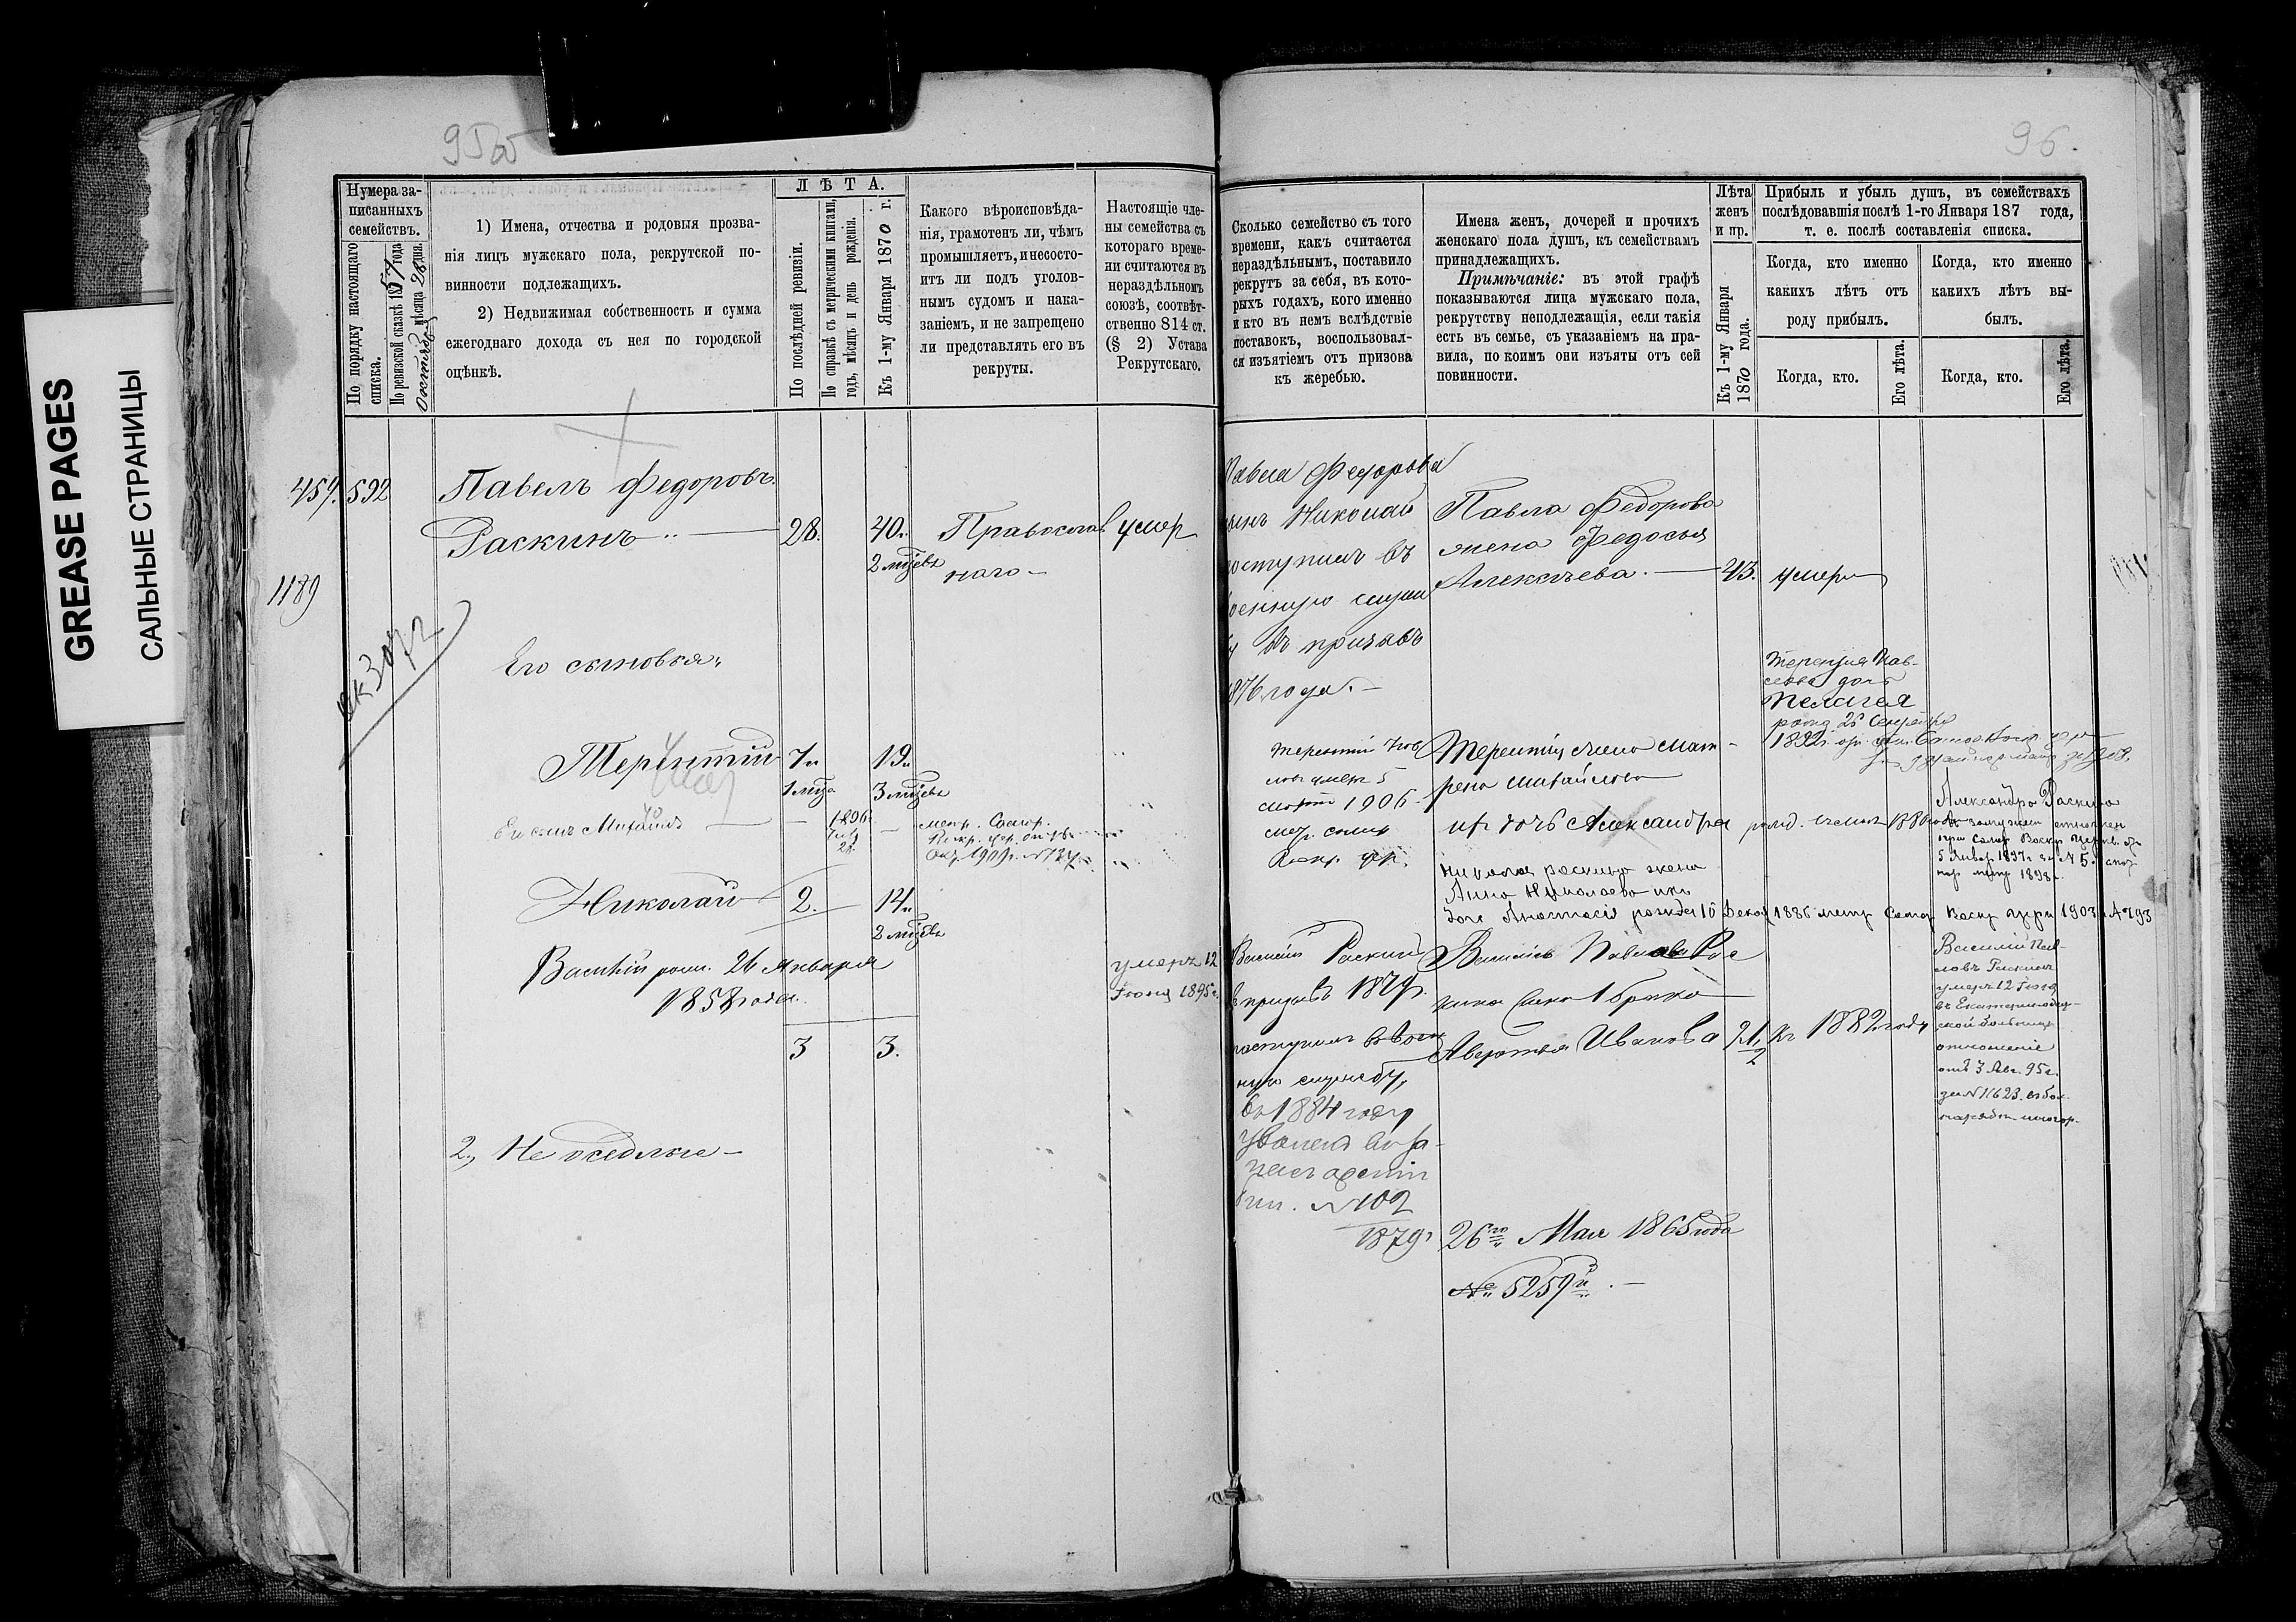 95об
96.
GREASE PAGES
САЛЬНЫЕ СТРАНИЦЫ
Нумера за-
писанныхъ
семействъ.
По порядку настоящаго
списка.
По ревизской сказкѣ 1857 года
октября мѣсяца 28 дня.
1) Имена, отчества и родовыя прозва-
нія лицъ мужскаго пола, рекрутской по-
винности подлежащихъ.
2) Недвижимая собственность и сумма
ежегоднаго дохода съ нея по городской
оцѣнкѣ.
ЛѢТА.
По послѣдней ревизіи.
По справкѣ съ метрическими книгами,
годъ, мѣсяцъ и день рожденія.
Къ 1-му Января 1870 г.
Какого вѣроисповѣда-
нія, грамотенъ ли, чѣмъ
промышляетъ, и несосто-
итъ ли подъ уголов-
нымъ судомъ и нака-
заніемъ, и не запрещено
ли представлять его въ
рекруты.
Настоящіе чле-
ны семейства съ
котораго време-
ни считаются въ
нераздѣльномъ
союзѣ, соотвѣт-
ственно 814 ст.
(§ 2) Устава
Рекрутскаго.
459. 592
Павелъ Федоровъ
Раскинъ 28. 40. Православ умер
2 мѣсяв
наго
1189
3072
Его сыновья,
Терентій 7 19
1 мѣца 3 мѣсяв
умер
Его сынъ Михаилъ 1896
метр. Самар.
1909г.
Николай 2. 14
2 мѣсяв
Василій 26 Января
1858 года.
умеръ 12
Іюня 1895г.
3 3.
2, Не оседлые
Сколько семейство съ того
времени, какъ считается
нераздѣльнымъ, поставило
рекрутъ за себя, въ кото-
рыхъ годахъ, кого именно
и кто въ немъ вслѣдствіе
поставокъ, воспользовал-
ся изъятіемъ отъ призова
къ жеребью.
Имена женъ, дочерей и прочихъ
женскаго пола душъ, къ семействамъ
принадлежащихъ.
Примѣчаніе: въ этой графѣ
показываются лица мужскаго пола,
рекрутству неподлежащія, если такія
есть въ семье, съ указаніемъ на пра-
вила, по коимъ они изъяты отъ сей
повинности.
Лѣта
женъ
и пр.
Къ 1-му Января
1870 года.
Прибыль и убыль душъ, въ семействахъ
послѣдовавшія послѣ 1-го Января 187 года,
т. е. послѣ составленія списка.
Когда, кто именно
какихъ лѣтъ отъ
роду прибылъ.
Когда, кто именно
какихъ лѣтъ вы-
былъ.
Когда, кто.
Его лѣта.
Когда, кто.
Его лѣта.
Павла Федорова
сынъ Николай
поступилъ въ
военную служ
бу въ призывъ
1876 года.
Павла Федорова
жена Федосья
Алексѣева. 43. умерла
Терентія Пав-
лова дочь
Пелагея
25 Сентября
1892г.
Терентій Пав
ловъ умеръ 5
марта 1906.
Терентія жена Мат-
рена Михайлова
их дочь Александра 1880
Александра Раскина
5 Январ 1897г. за № 5
1898г.
Николая Раскина жена
Анна Николаева и их
дочь Анастасія рожд 10 Декаб 1886 метр Самар Воскр церкви 1903 № 793
Василій Раскин
в призывъ 1879г.
поступилъ в воен
ную службу,
во 1884 году
уволенъ въ за-
пасъ арміи
бил. №102
1879г
Василія Павлова Рас
кина жена 1 брака
Авдотья Иванова 21 1/2 Въ 1882 году
Василій Пав-
ловъ Раскинъ
умеръ 12 Іюня
въ Екатеринодар-
ской больницѣ
отношеніе
отъ 3 Авг. 95г.
за №11623
26го Мая 1865 года
№ 5259й